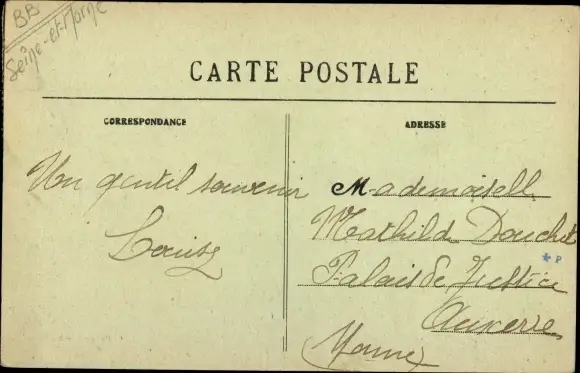 BB
Seine-et-Marne
CARTE POSTALE
CORRESPONDANCE
ADRESSE
Un gentil souvenir
Louise
Mademoiselle
Mathilde Douchet
* P
Palais de Justice
Auxerre
(Yonne)